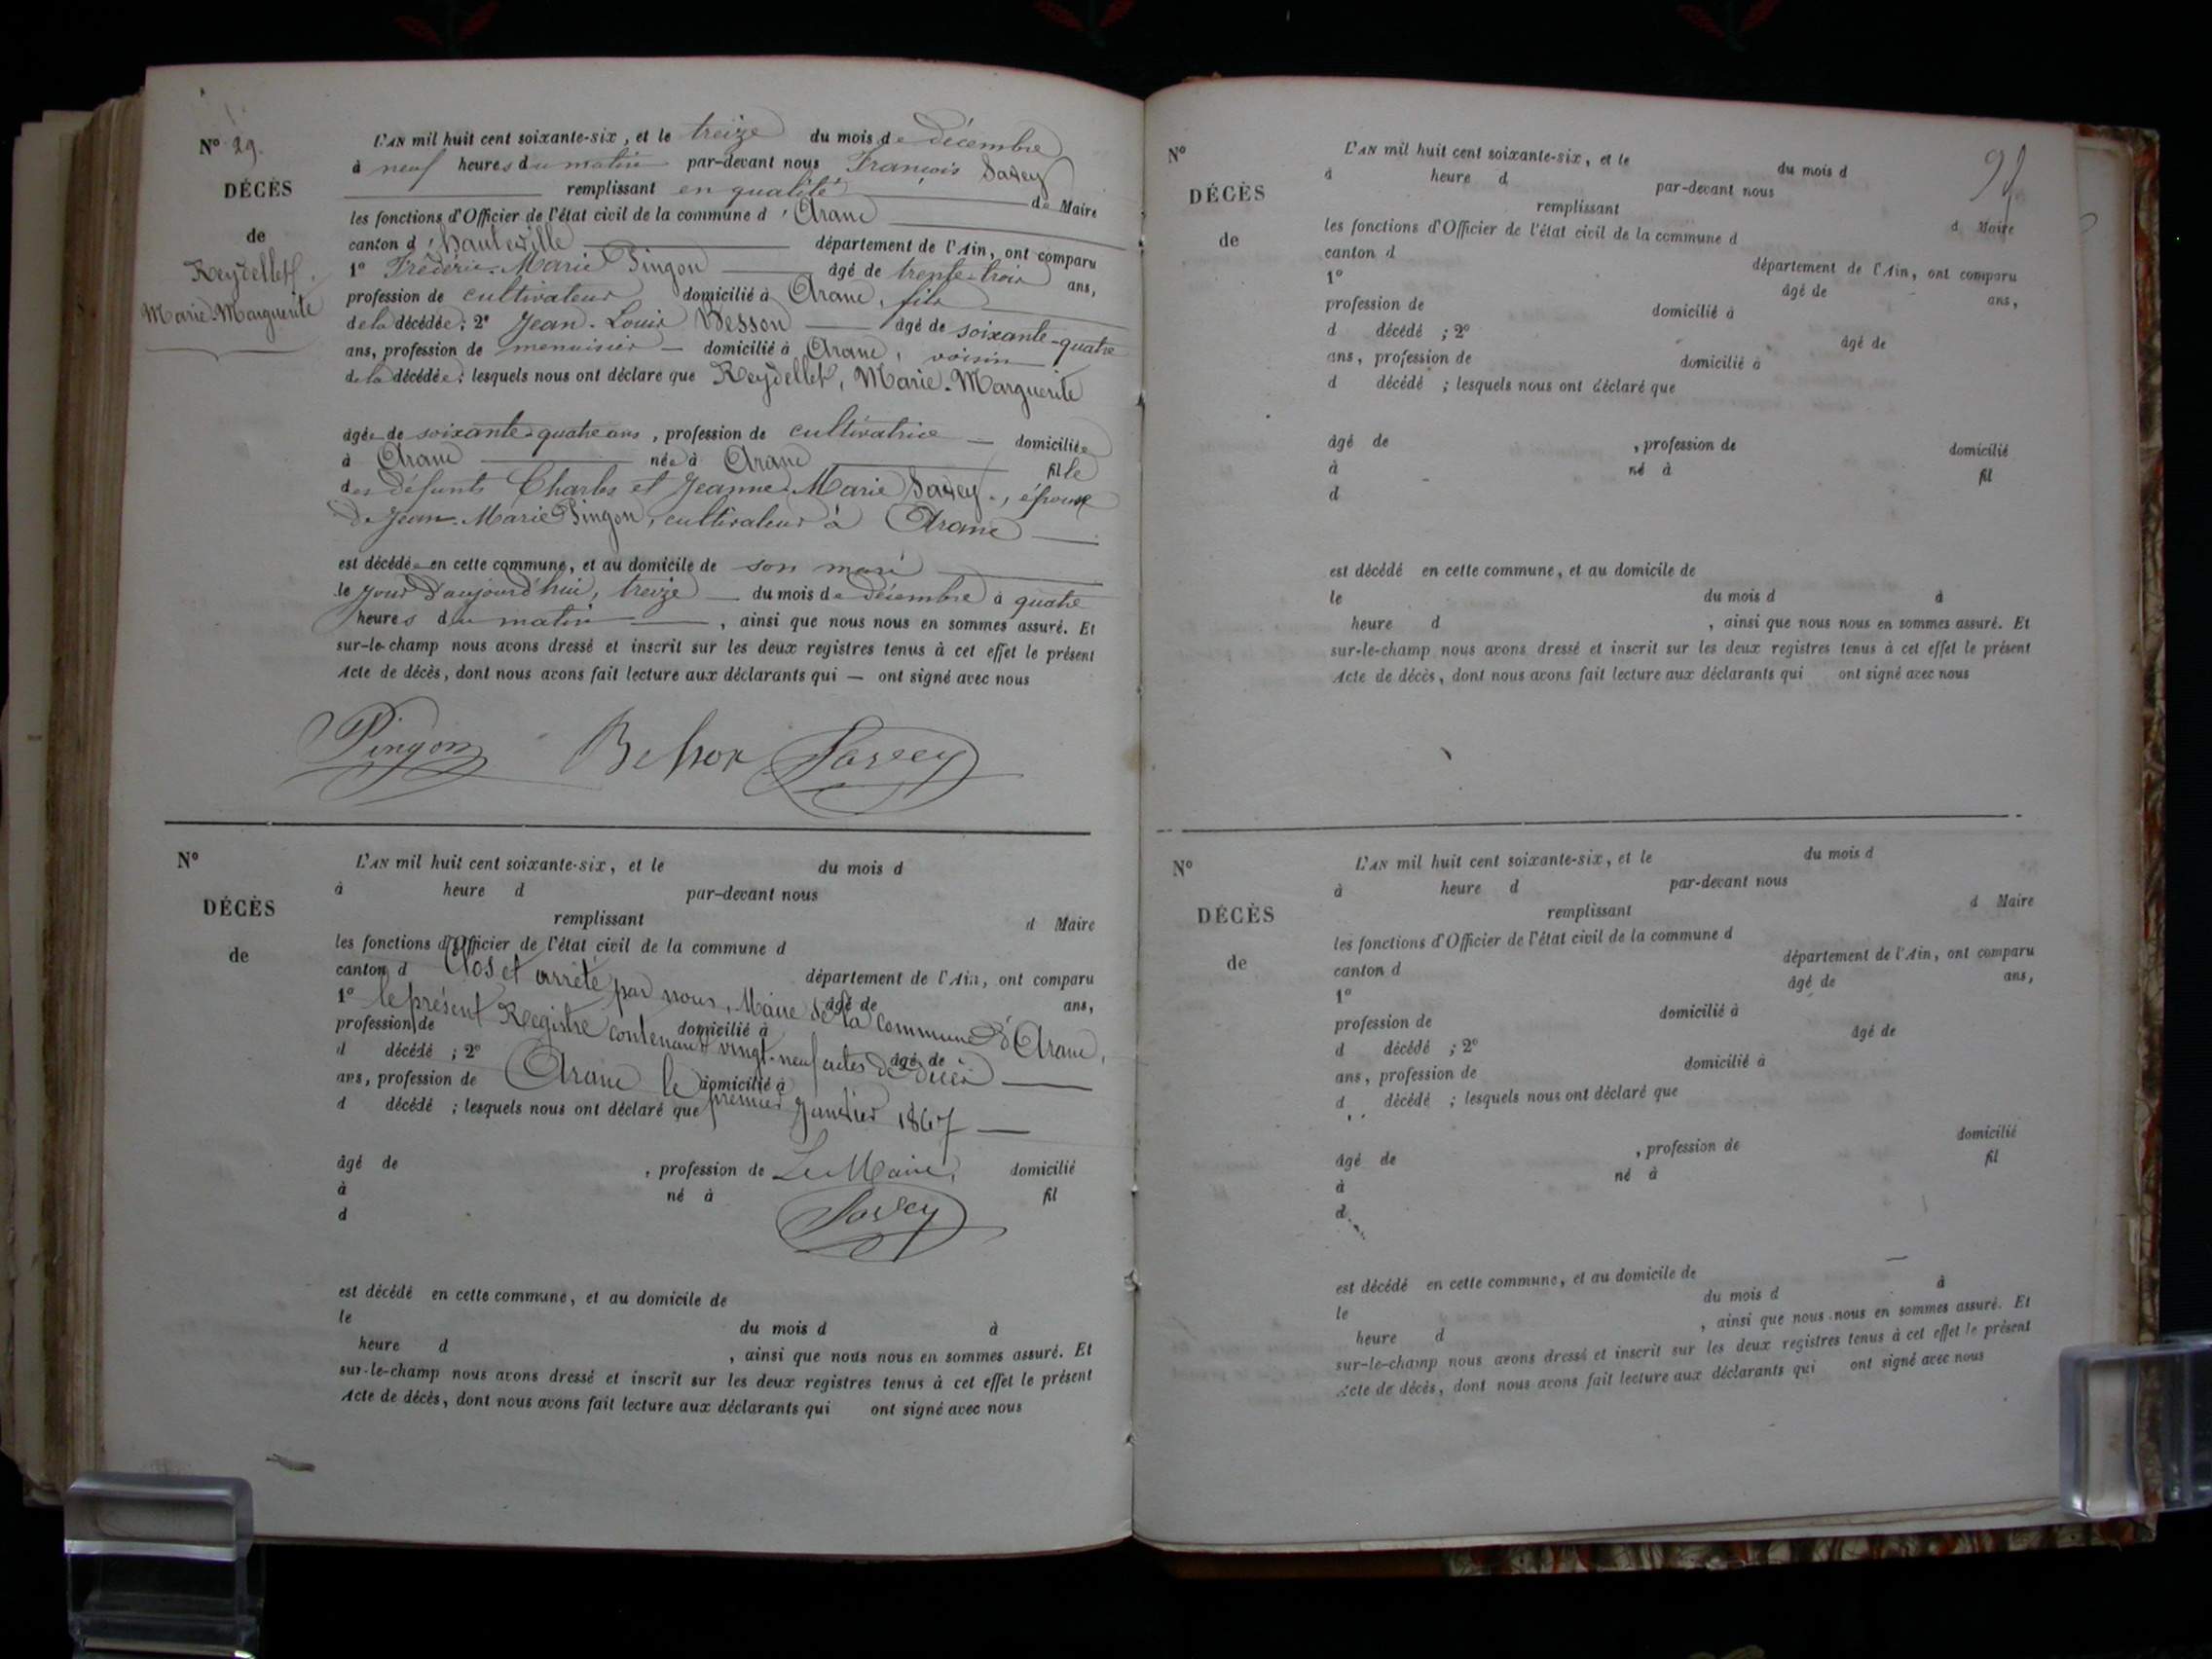 N° 29.
DÉCÈS
de
Reydellet,
Marie-Marguerite
L'AN mil huit cent soixante-six, et le treize du mois de décembre
à neuf heures du matin par-devant nous François Savey
remplissant en qualité de Maire
les fonctions d'Officier de l'état civil de la commune d'Aranc
canton d'hauteville département de l'Ain, ont comparu
1° Frédéric-Marie Pingon âgé de trente-trois ans,
profession de cultivateur domicilié à Aranc, fils
de la décédée; 2° Jean-Louis Besson âgé de soixante-quatre
ans, profession de menuisier — domicilié à Aranc, voisin
de la décédée; lesquels nous ont déclaré que Reydellet, Marie-Marguerite
âgée de soixante-quatre ans, profession de cultivatrice — domiciliée
à Aranc née à Aranc fille
des défunts Charles et Jeanne-Marie Savey, épouse
de Jean-Marie Pingon, cultivateur à Aranc —
est décédée en cette commune, et au domicile de son mari
le jour d'aujourd'hui, treize — du mois de décembre à quatre
heures du matin —, ainsi que nous nous en sommes assuré. Et
sur-le-champ nous avons dressé et inscrit sur les deux registres tenus à cet effet le présent
Acte de décès, dont nous avons fait lecture aux déclarants qui — ont signé avec nous
Pingon Besson Savey
N°
DÉCÈS
de
L'AN mil huit cent soixante-six, et le du mois d
à heure d par-devant nous
remplissant d Maire
les fonctions d'Officier de l'état civil de la commune d
canton d département de l'Ain, ont comparu
1° âgé de ans,
profession de domicilié à
d décédé ; 2° âgé de
ans, profession de domicilié à
d décédé ; lesquels nous ont déclaré que
Clos et arrêté par nous, Maire de la commune d'Aranc,
le présent Registre contenant vingt-neuf actes de décès —
Aranc le premier Janvier 1867 —
Le Maire,
Savey
âgé de , profession de domicilié
à né à fil
d
est décédé en cette commune, et au domicile de
le du mois d à
heure d , ainsi que nous nous en sommes assuré. Et
sur-le-champ nous avons dressé et inscrit sur les deux registres tenus à cet effet le présent
Acte de décès, dont nous avons fait lecture aux déclarants qui ont signé avec nous
N°
DÉCÈS
de
L'AN mil huit cent soixante-six, et le du mois d
à heure d par-devant nous
remplissant d Maire
les fonctions d'Officier de l'état civil de la commune d
canton d département de l'Ain, ont comparu
1° âgé de ans,
profession de domicilié à
d décédé ; 2° âgé de
ans, profession de domicilié à
d décédé ; lesquels nous ont déclaré que
âgé de , profession de domicilié
à né à fil
d
est décédé en cette commune, et au domicile de
le du mois d à
heure d , ainsi que nous nous en sommes assuré. Et
sur-le-champ nous avons dressé et inscrit sur les deux registres tenus à cet effet le présent
Acte de décès, dont nous avons fait lecture aux déclarants qui ont signé avec nous
N°
DÉCÈS
de
L'AN mil huit cent soixante-six, et le du mois d
à heure d par-devant nous
remplissant d Maire
les fonctions d'Officier de l'état civil de la commune d
canton d département de l'Ain, ont comparu
1° âgé de ans,
profession de domicilié à
d décédé ; 2° âgé de
ans, profession de domicilié à
d décédé ; lesquels nous ont déclaré que
âgé de , profession de domicilié
à né à fil
d
est décédé en cette commune, et au domicile de
le du mois d à
heure d , ainsi que nous nous en sommes assuré. Et
sur-le-champ nous avons dressé et inscrit sur les deux registres tenus à cet effet le présent
Acte de décès, dont nous avons fait lecture aux déclarants qui ont signé avec nous